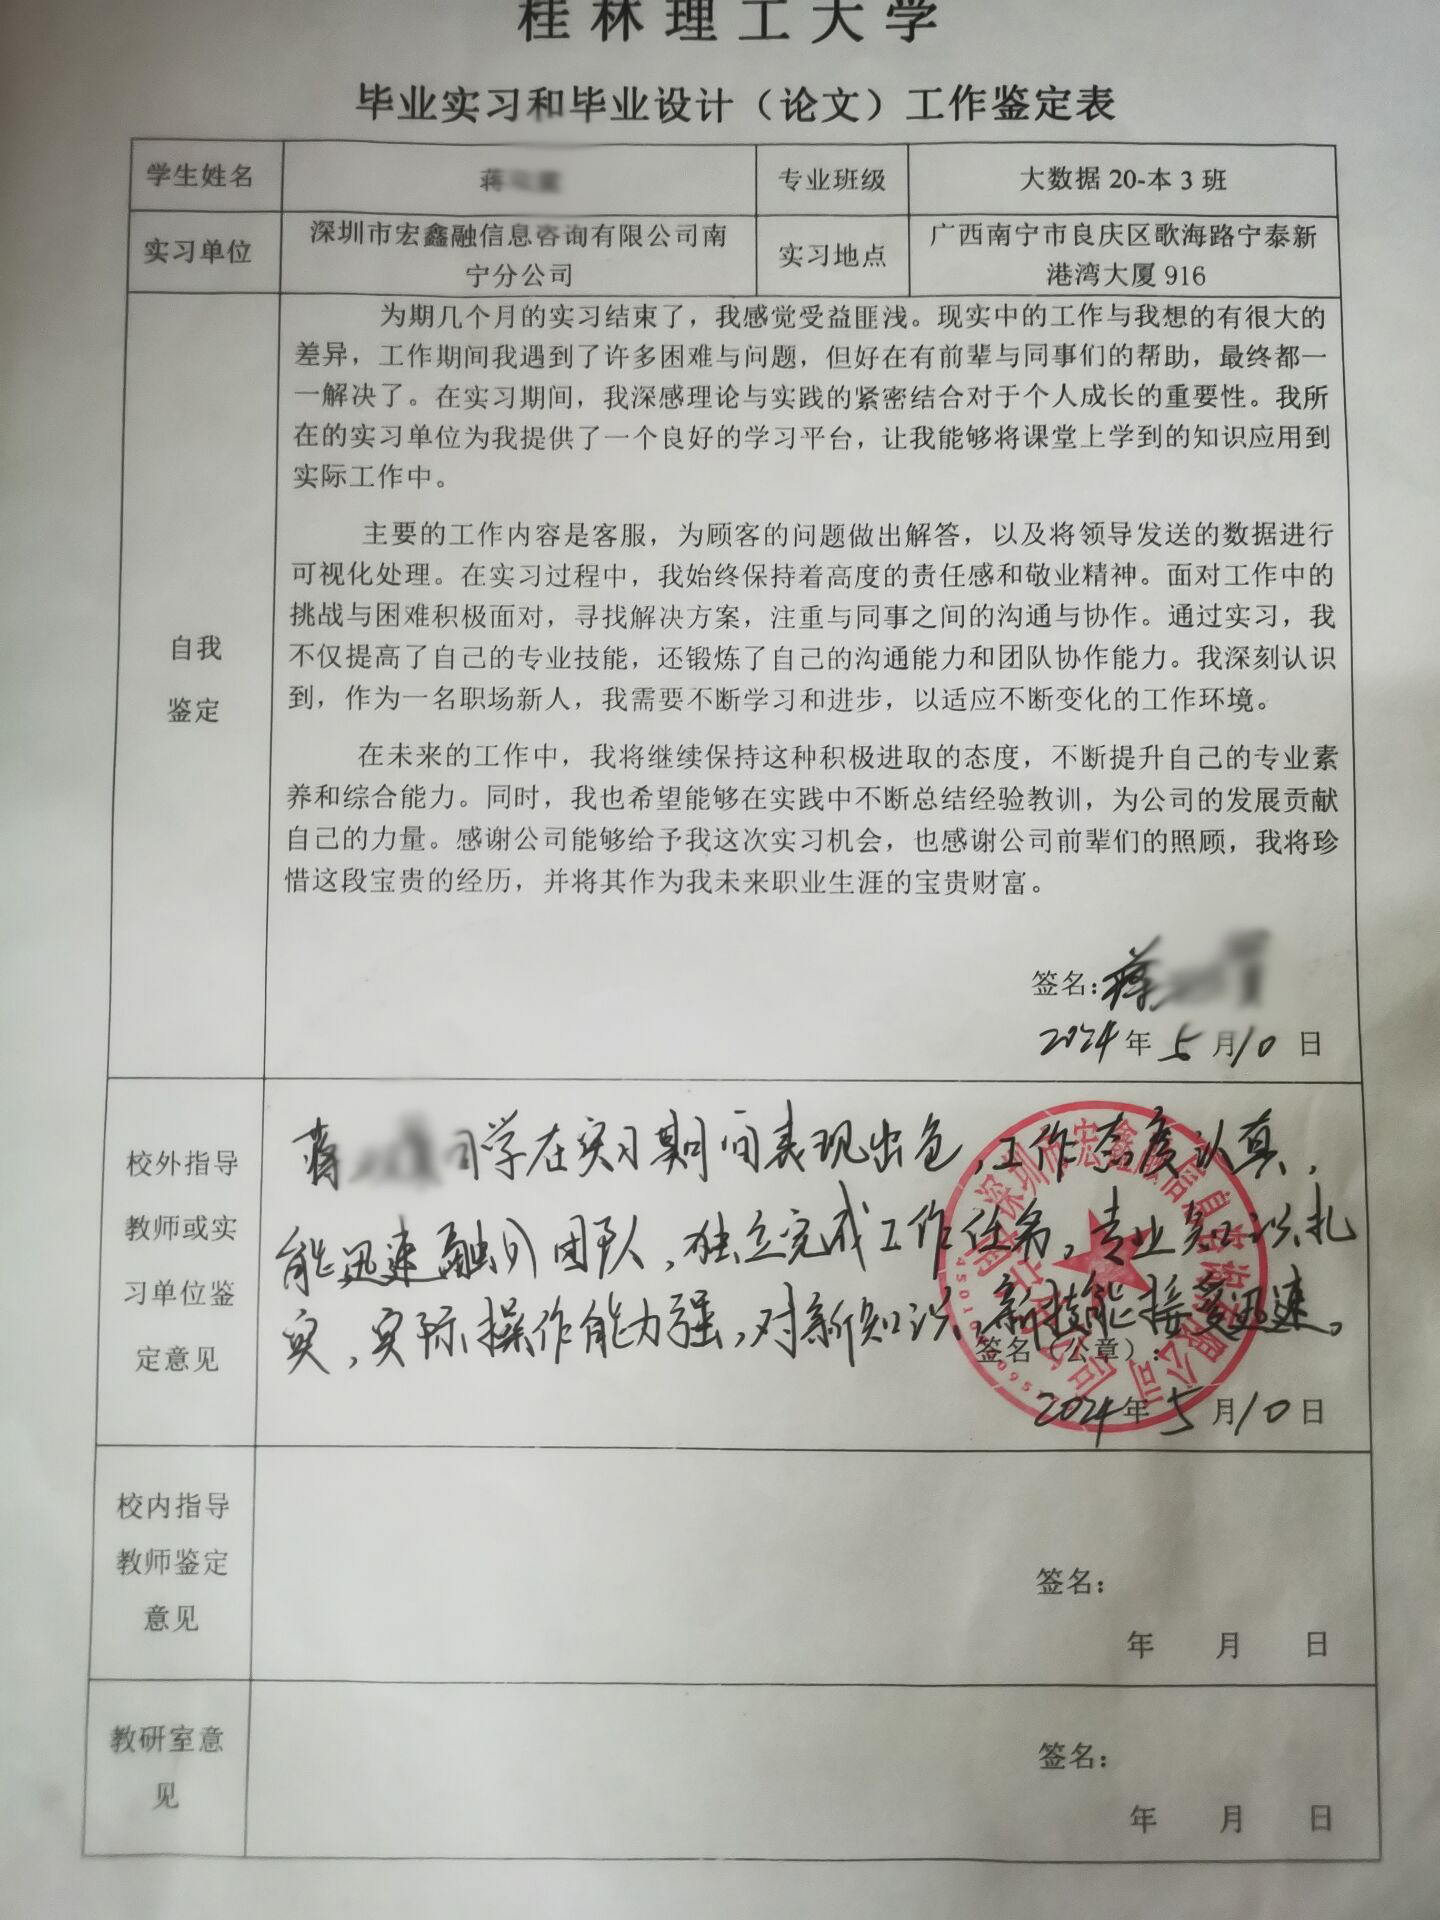 桂林理工大学
毕业实习和毕业设计（论文）工作鉴定表
学生姓名 蒋 专业班级 大数据 20-本 3 班
实习单位 深圳市宏鑫融信息咨询有限公司南
宁分公司
实习地点 广西南宁市良庆区歌海路宁泰新
港湾大厦 916
自我
鉴定
为期几个月的实习结束了，我感觉受益匪浅。现实中的工作与我想的有很大的
差异，工作期间我遇到了许多困难与问题，但好在有前辈与同事们的帮助，最终都一
一解决了。在实习期间，我深感理论与实践的紧密结合对于个人成长的重要性。我所
在的实习单位为我提供了一个良好的学习平台，让我能够将课堂上学到的知识应用到
实际工作中。
主要的工作内容是客服，为顾客的问题做出解答，以及将领导发送的数据进行
可视化处理。在实习过程中，我始终保持着高度的责任感和敬业精神。面对工作中的
挑战与困难积极面对，寻找解决方案，注重与同事之间的沟通与协作。通过实习，我
不仅提高了自己的专业技能，还锻炼了自己的沟通能力和团队协作能力。我深刻认识
到，作为一名职场新人，我需要不断学习和进步，以适应不断变化的工作环境。
在未来的工作中，我将继续保持这种积极进取的态度，不断提升自己的专业素
养和综合能力。同时，我也希望能够在实践中不断总结经验教训，为公司的发展贡献
自己的力量。感谢公司能够给予我这次实习机会，也感谢公司前辈们的照顾，我将珍
惜这段宝贵的经历，并将其作为我未来职业生涯的宝贵财富。
签名：蒋
2024 年 5 月 10 日
校外指导
教师或实
习单位鉴
定意见
蒋 同学在实习期间表现出色，工作态度认真，
能迅速融入团队，独立完成工作任务，专业知识扎
实，实际操作能力强，对新知识、新技能接受迅速。
签名（公章）：
2024 年 5 月 10 日
深圳市宏鑫融信息咨询有限公司
南宁分公司
校内指导
教师鉴定
意见
签名：
年 月 日
教研室意
见
签名：
年 月 日